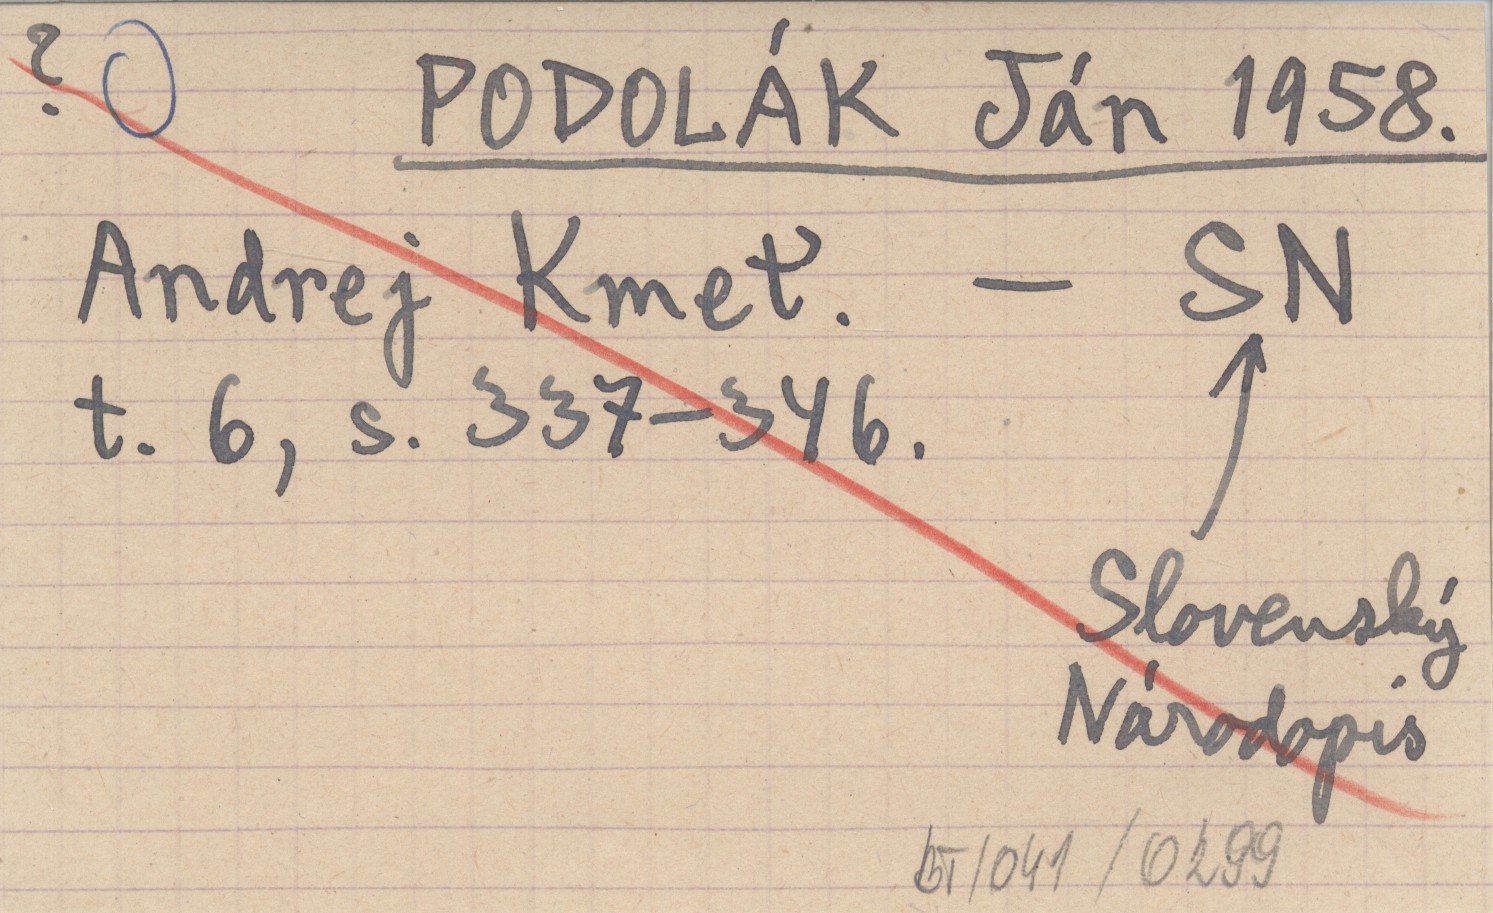 ?
PODOLÁK Ján 1958.
Andrej Kmeť. — SN
t. 6, s. 337-346.
Slovenský
Národopis
BT/041/0299